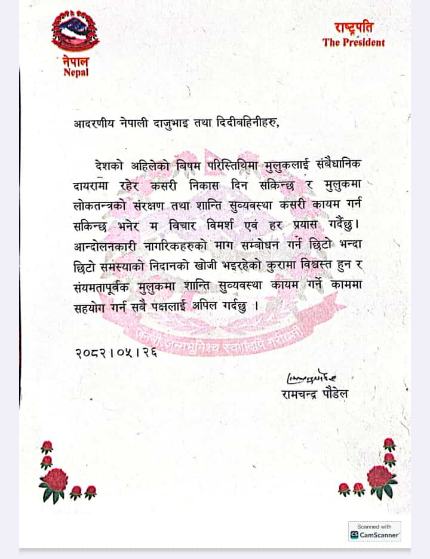 नेपाल
Nepal
राष्ट्रपति
The President
आदरणीय नेपाली दाजुभाइ तथा दिदीबहिनीहरु,
देशको अहिलेको बिषम परिस्थितिमा मुलुकलाई संबैधानिक
दायरामा रहेर कसरी निकास दिन सकिन्छ र मुलुकमा
लोकतन्त्रको संरक्षण तथा शान्ति सुव्यवस्था कसरी कायम गर्न
सकिन्छ भनेर म विचार विमर्श एवं हर प्रयास गर्दैछु।
आन्दोलनकारी नागरिकहरुको माग सम्बोधन गर्न छिटो भन्दा
छिटो समस्याको निदानको खोजी भइरहेको कुरामा विश्वस्त हुन र
संयमतापूर्वक मुलुकमा शान्ति सुव्यवस्था कायम गर्ने काममा
सहयोग गर्न सबै पक्षलाई अपिल गर्दछु ।
जननी जन्मभूमिश्च स्वर्गादपि गरीयसी
२०८२।०५।२६
रामचन्द्र पौडेल
Scanned with
CamScanner